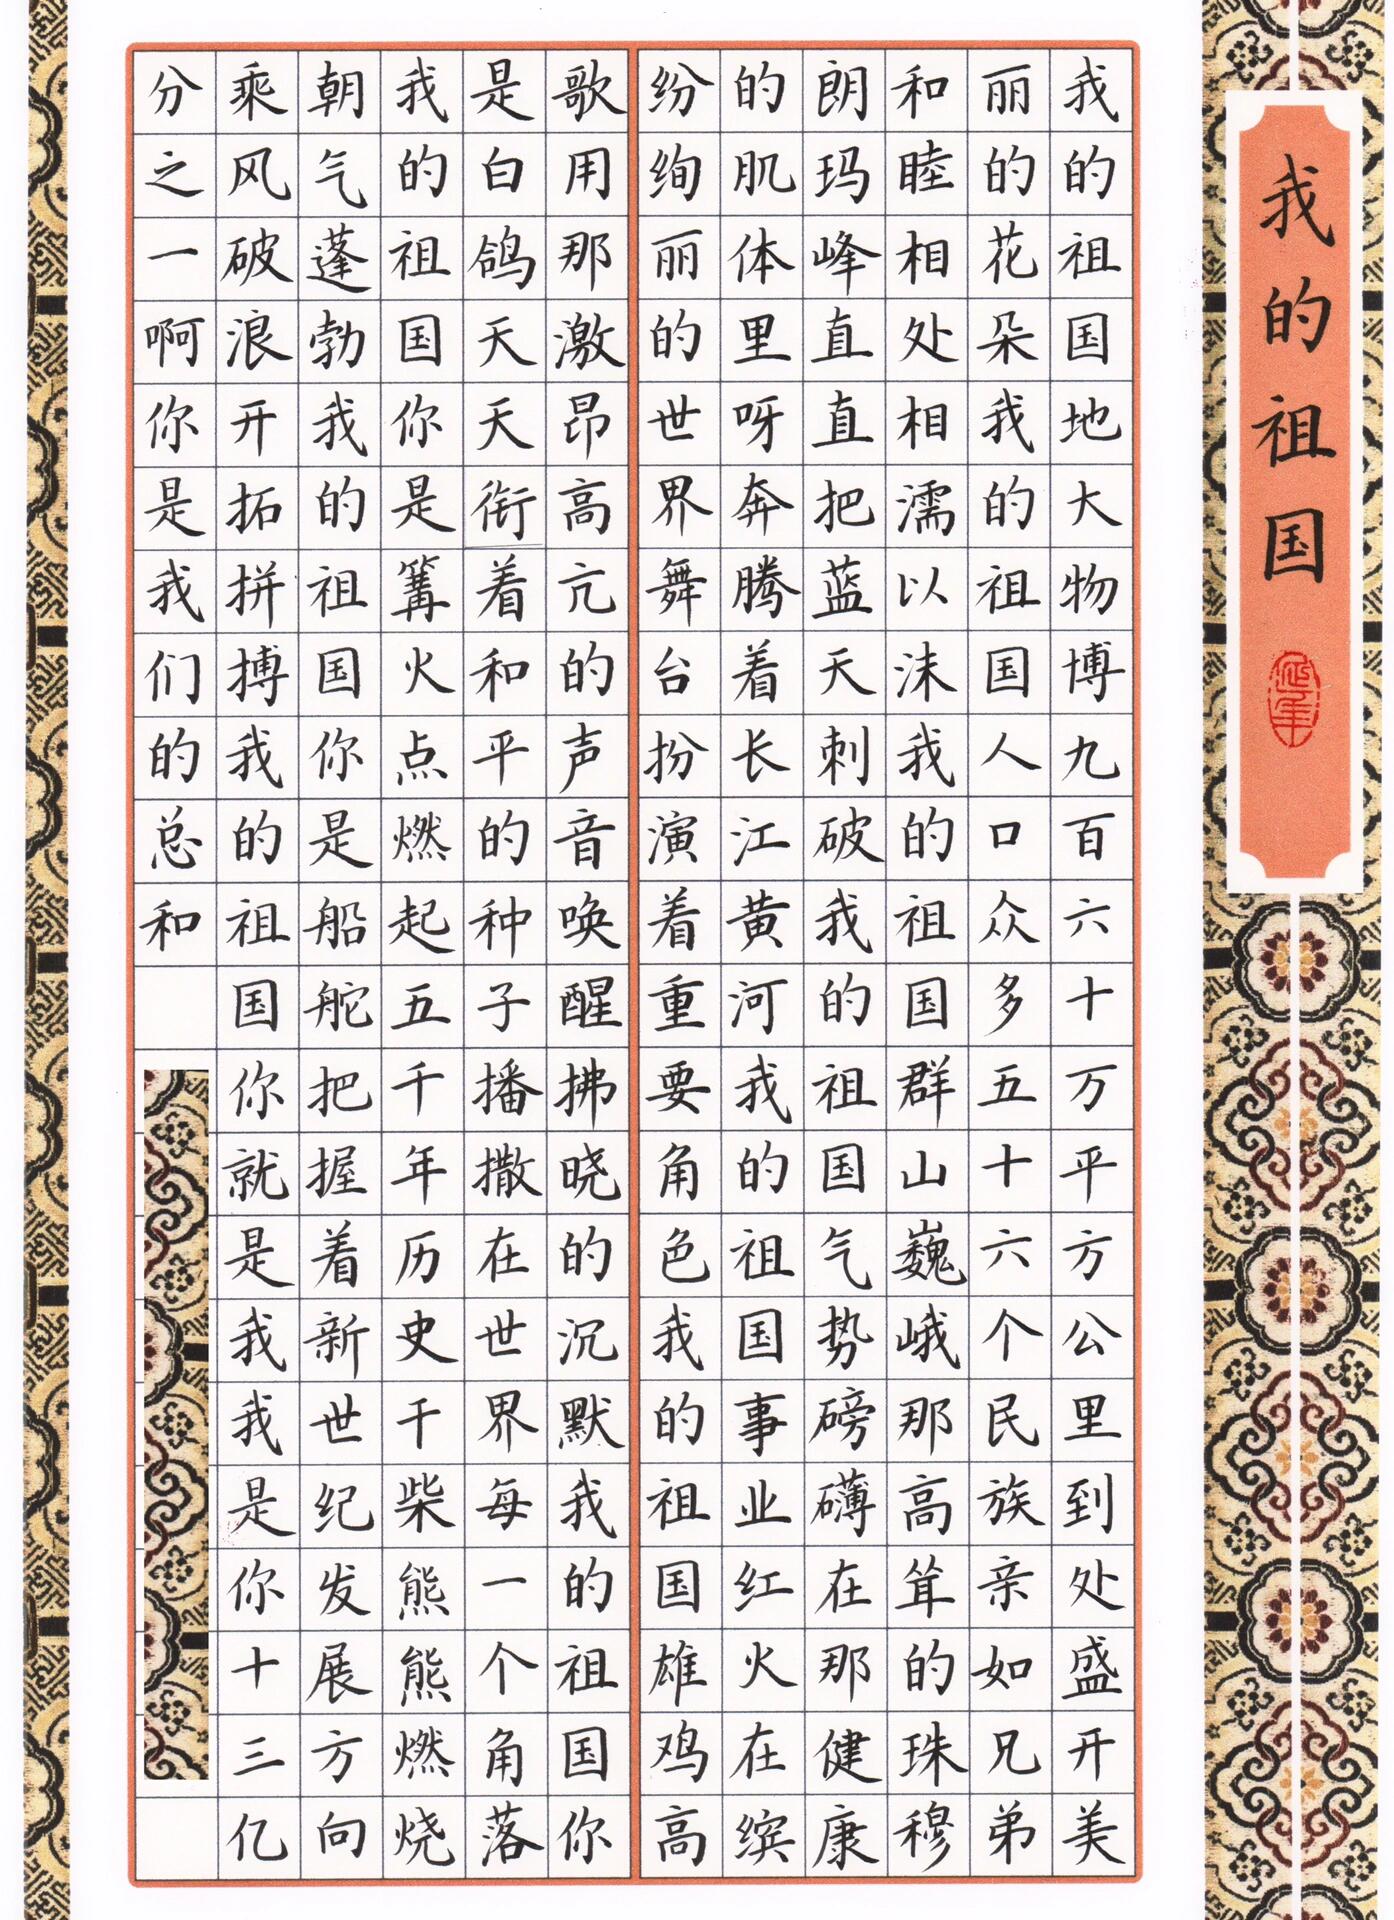 我的祖国
我的祖国地大物博九百六十万平方公里到处盛开美
丽的花朵我的祖国人口众多五十六个民族亲如兄弟
和睦相处相濡以沫我的祖国群山巍峨那高耸的珠穆
朗玛峰直直把蓝天刺破我的祖国气势磅礴在那健康
的肌体里呀奔腾着长江黄河我的祖国事业红火在缤
纷绚丽的世界舞台扮演着重要角色我的祖国雄鸡高
歌用那激昂高亢的声音唤醒拂晓的沉默我的祖国你
是白鸽天天衔着和平的种子播撒在世界每一个角落
我的祖国你是篝火点燃起五千年历史干柴熊熊燃烧
朝气蓬勃我的祖国你是船舵把握着新世纪发展方向
乘风破浪开拓拼搏我的祖国你就是我我是你十三亿
分之一啊你是我们的总和